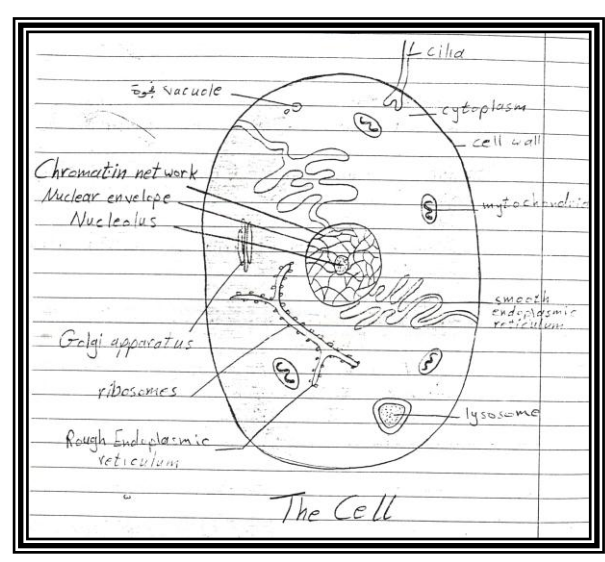 cilia
فجوة vacuole
cytoplasm
cell wall
Chromatin network
Nuclear envelope
mytochondria
Nucleolus
smooth
endoplasmic
reticulum
Golgi apparatus
ribosomes
lysosome
Rough Endoplasmic
reticulum
The Cell